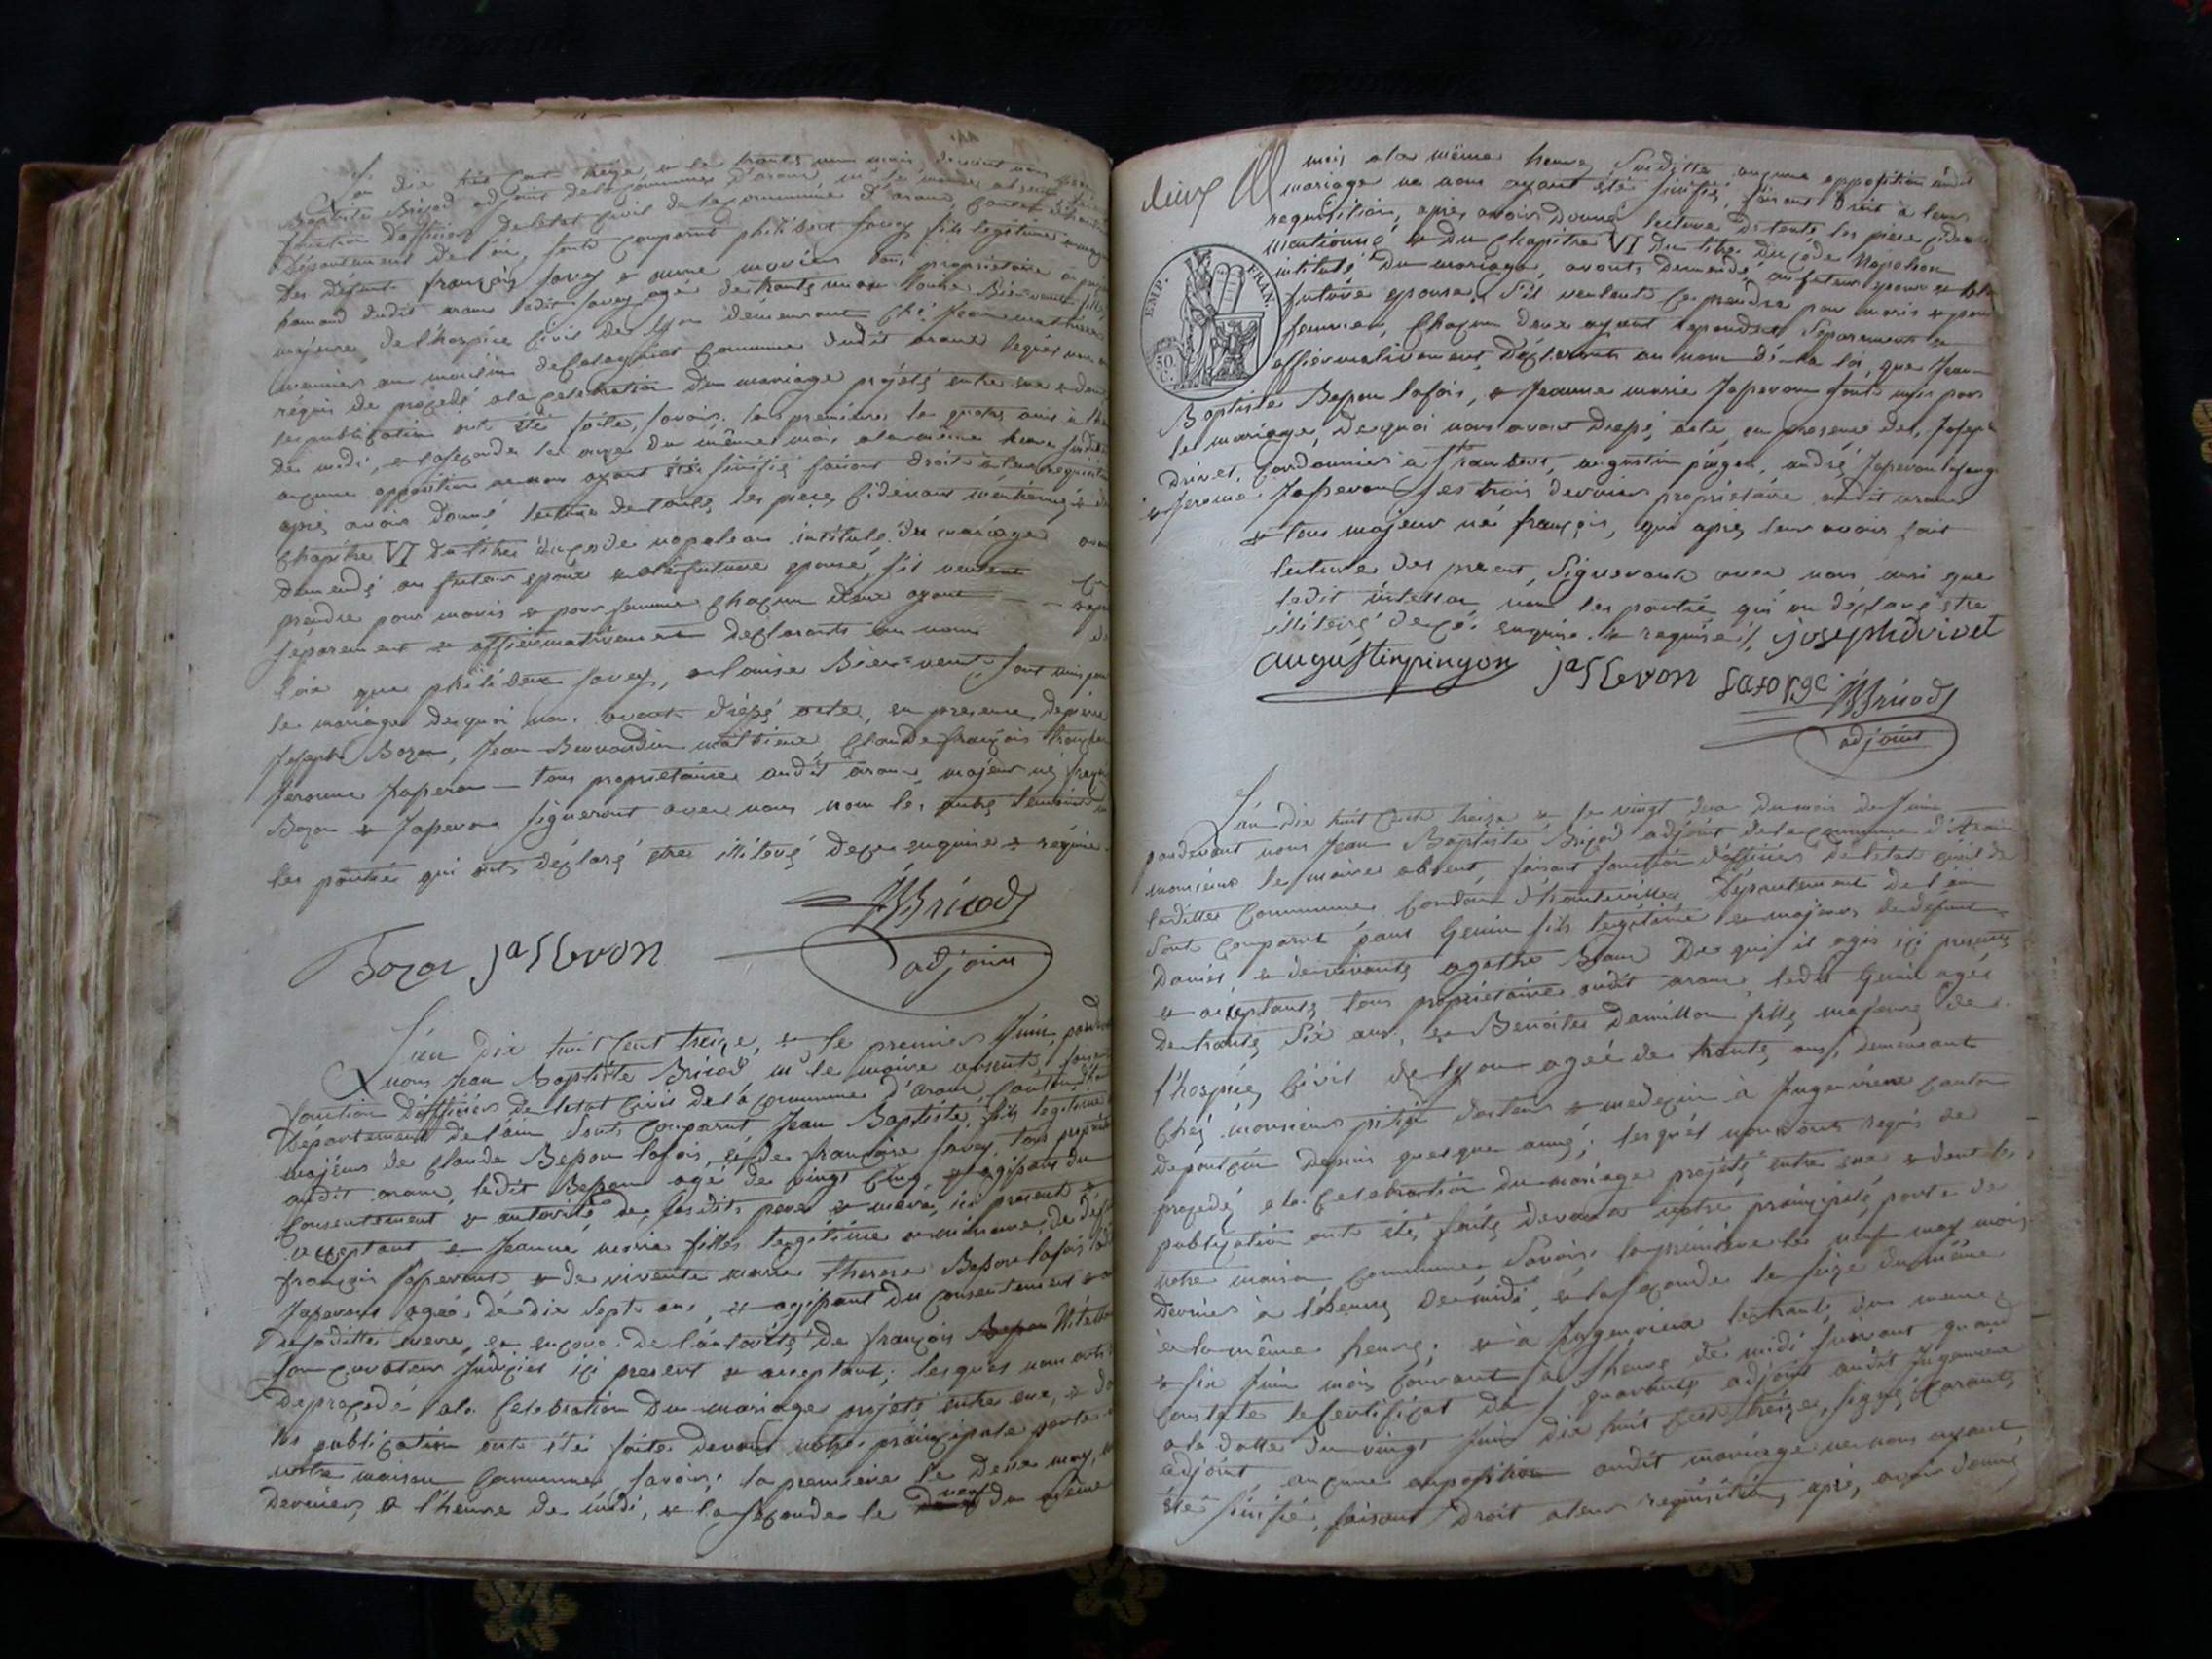 L'an dix huit cent treize et le trente un mai devant nous Jean
Baptiste Bricod adjoint de la commune d'aranc mr le maire absent
fonction d'officier de l'état civil de la commune d'aranc, canton
Département de l'ain, sont comparut philibert savey fils légitime
des défunt françois savey et anne
hameau dudit aranc ledit savey agé de trente un an louise Bien-venu fille
majeure de l'hospice civil de lyon demeurant ché
meunier au moulin commune dudit aranc lequel nous
réquis de procedé a la celebration du mariage projeté entre eux et dont
les publication ont été faite, savoir, la premiere le quatre
de midi, et la seconde le onze du même mois a la même heure
aucune opposition ne nous ayant été sinifié faisant droit a leur requisition
apres avoir donné lecture de toute les piece cidevant mentionné
chapitre VI du titre du code napoleon intitulé du mariage
demendé au futeur epoux et a la future epouse s'il veulent
prendre pour maris et pour femme chacun deux ayant
séparement et affirmativement declarons au nom
loix que philibert savey, et louise Bien=venu, sont unis par
le mariage de quoi nous avont dressé acte, en presence de
Joseph Bozon, Jean Bernardin mathieu, Claude françois
Jerome Jasseron tous propriétaire audit aranc, majeur né
Bozon et Jasseron signeront avec nous non les autre temoins
les partie qui ont déclaré etre illiteré de ce enquise et requise.
Bozon jasseron JBBricod
adjoint
L'an dix huit cent treize, et le premier Juin, pardevant
nous Jean Baptiste Bricod mr le maire absent, faisant
fonction d'officier de letat civil de la commune d'aranc canton
Département de l'ain sont comparut Jean Baptiste, fils legitime
majeur de Claude Besson lafois, et de françoise savey, tous
audit aranc, ledit Besson agé de vingt cinq, et agissant du
consentement et autorité de sesdits pere et mere, ici present et
acceptant et Jeanne marie fille legitime et mineure, de
françois Jasseront et de vivente marie therese Besson lafois
Jasseront ageé de dix sept ans, et agissant du consentement
de saditte mere, et encore de l'autorité de françois
son curateur judiciel ici present et acceptant; lesquels nous ont
de procedé a la celebration du mariage projeté entre eux, et
les publication ont été faite devant notre principale porte
notre maison commune, savoir; la premiere le deux may,
dernier, a l'heure de midi, et la seconde le neuf du même
deux
mois a la même heure susditte aucune opposition audit
mariage ne nous ayant été sinifié, faisant droit a leur
requisition, apres avoir donné lecture de toute les piece cidevant
mentionné et du chapitre VI du titre du code Napoleon
intitulé du mariage, avont demendé au futeur epoux et a la
future epouse, s'il veulent ce prendre pour maris et pour
femme, chacun deux ayant repondut separement et
affirmativement, déclarons au nom de la loi, que Jean
EMP. FRAN.
50
C.
Baptiste Besson lafois, et Jeanne marie Jasseron sont unis par
le mariage, de quoi nous avont dressé acte en presence de, Joseph
Drivet, cordonnier a st rambert, augustin pingon, andré Jasseron laforge
et Jerome Jasseron, les trois dernier propriétaire audit aranc
et tous majeur né françois, qui apres leur avoir fait
lecture des present, signeront avec nous ainsi que
ledit nom les partie qui on déclaré etre
illiteré de ce enquise et requise./. josephdrivet
augustinpingon jasseron laforge JBBricod
adjoint
L'an dix huit cent treize et le vingt deux du mois de Juin
pardevant nous Jean Baptiste Bricod adjoint de la commune d'Aranc
monsieur le maire absent, faisant fonction d'officier de letat civil de
laditte commune canton d'hauteville Département de l'ain
sont comparut paul Genin fils legitime et majeur de defunt
et de vivante agathe de qui il agis ici presente
et acceptante, tous propriétaire audit aranc, ledit Genin agé
de trente six ans, et Benoite Damillon fille majeure de
l'hospice civil de lyon ageé de trente, ans, demeurant
ché monsieur docteur et medecin à Jugurieux canton
depontdain depuis quelque anné; lesquel nous ont requis de
procedé a la celebration du mariage projeté entre eux et dont les
publication ont été, faite devant notre principale porte de
notre maison commune savoir, la premiere le neuf may mois
dernier à l'heure de midi, et la seconde le seize du même
à la même heure, et à Jugurieux le trente, du meme
et six Juin mois courant à l'heure de midi suivant quand
constate le certificat du adjoint audit Jugurieux
a la datte du vingt Juin dix huit cent treize, signé
adjoint, aucune opposition audit mariage ne nous ayant
été sinifié, faisant droit a leur requisition, apres, avoir donné